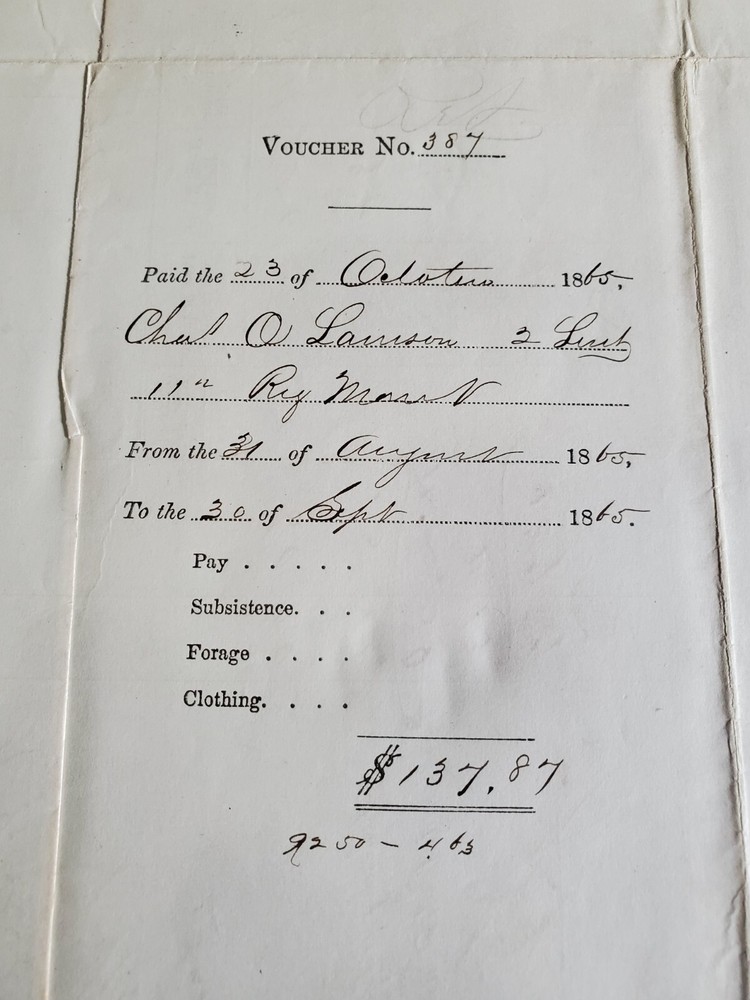 VOUCHER No. 387
Paid the 23 of October 1865,
Chas O Lamson 2 Lieut
11th Reg Mass V
From the 31 of August 1865,
To the 30 of Sept 1865.
Pay . . . . .
Subsistence. . .
Forage . . . .
Clothing. . . .
$137.87
9250 – 463